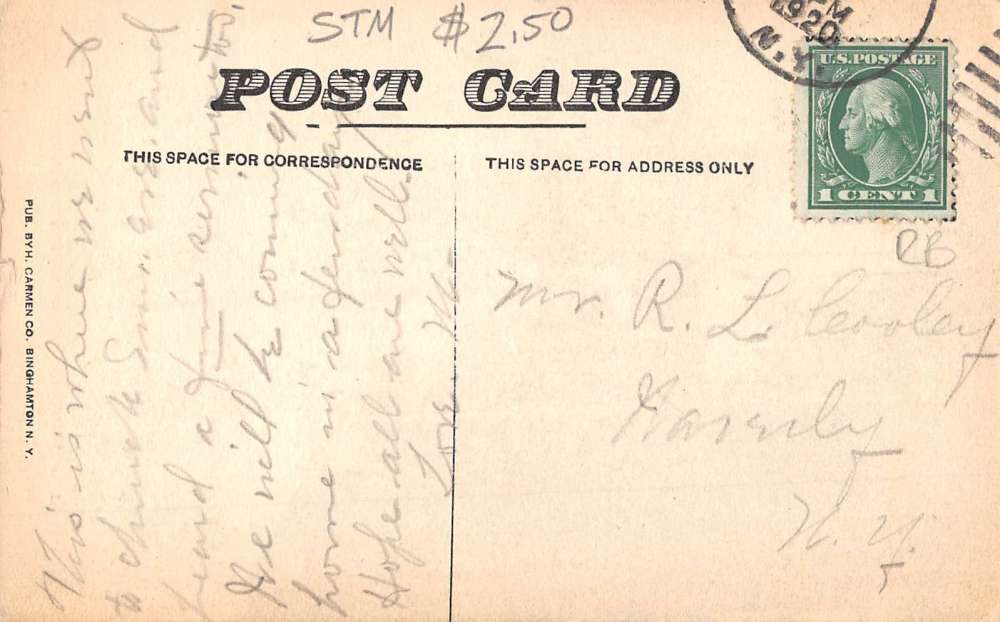 STM $2.50
POST CARD
THIS SPACE FOR CORRESPONDENCE
THIS SPACE FOR ADDRESS ONLY
PM
1920
N.Y.
U.S. POSTAGE
1 CENT 1
RB
Mr. R. L. Cooley
Waverly
N. Y.
This is where we went
to church Sun. eve and
heard a fine sermon too.
We will be coming
home in a few days
Hope all are well
Love
PUB. BY H. CARMEN CO. BINGHAMTON N. Y.